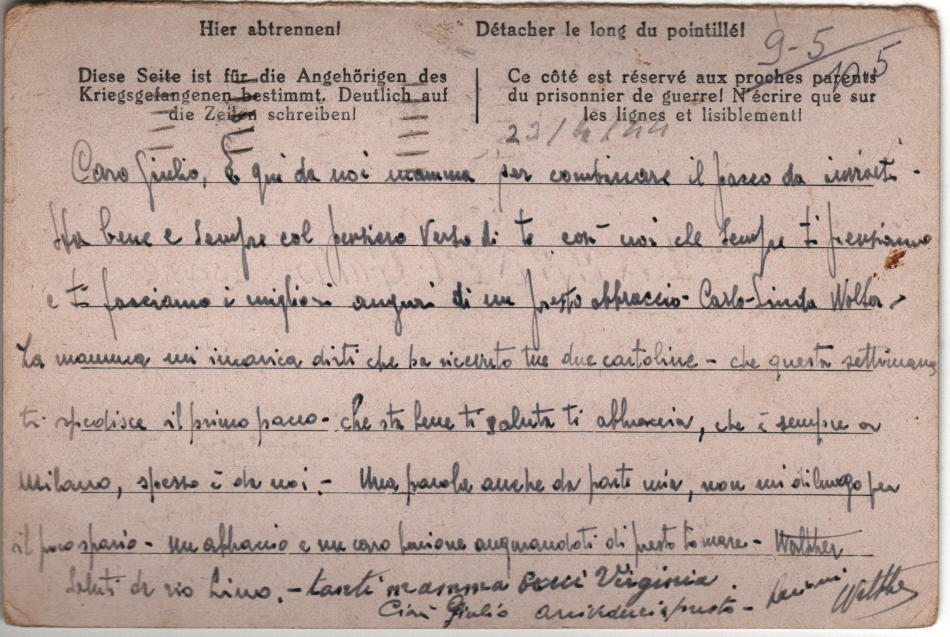 Hier abtrennen! Détacher le long du pointillé!
9-5
10-5
Diese Seite ist für die Angehörigen des
Kriegsgefangenen bestimmt. Deutlich auf
die Zeilen schreiben!
Ce côté est réservé aux proches parents
du prisonnier de guerre! N'écrire que sur
les lignes et lisiblement!
23/4/44
Caro Giulio, È qui da noi mamma per combinare il pacco da inviarti.
Sta bene e sempre col pensiero verso di te, così noi che sempre ti pensiamo
e ti facciamo i migliori auguri di un presto abbraccio - Carlo-Linda Walter -
La mamma mi incarica dirti che ha ricevuto tue due cartoline - che questa settimana
ti spedisce il primo pacco - che sta bene ti saluta ti abbraccia, che è sempre a
milano, spesso è da noi. - Una parola anche da parte mia, non mi dilungo per
il poco spazio - un abbraccio e un caro bacione augurandoti di presto tornare - Walther
Saluti da zio Lino. - tanti mamma Virginia.
Ciao Giulio arrivederci presto - Walther